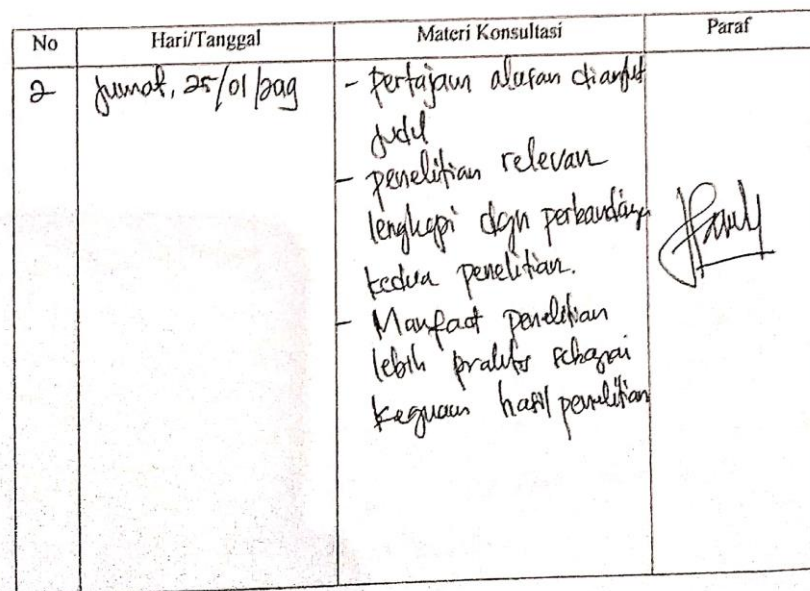 No Hari/Tanggal Materi Konsultasi Paraf
2 Jumat, 25/01/2019 - Pertajam alasan diangkat
judul
- penelitian relevan
lengkapi dgn perbandingan
kedua penelitian.
- Manfaat penelitian
lebih praktis sebagai
kegunaan hasil penelitian